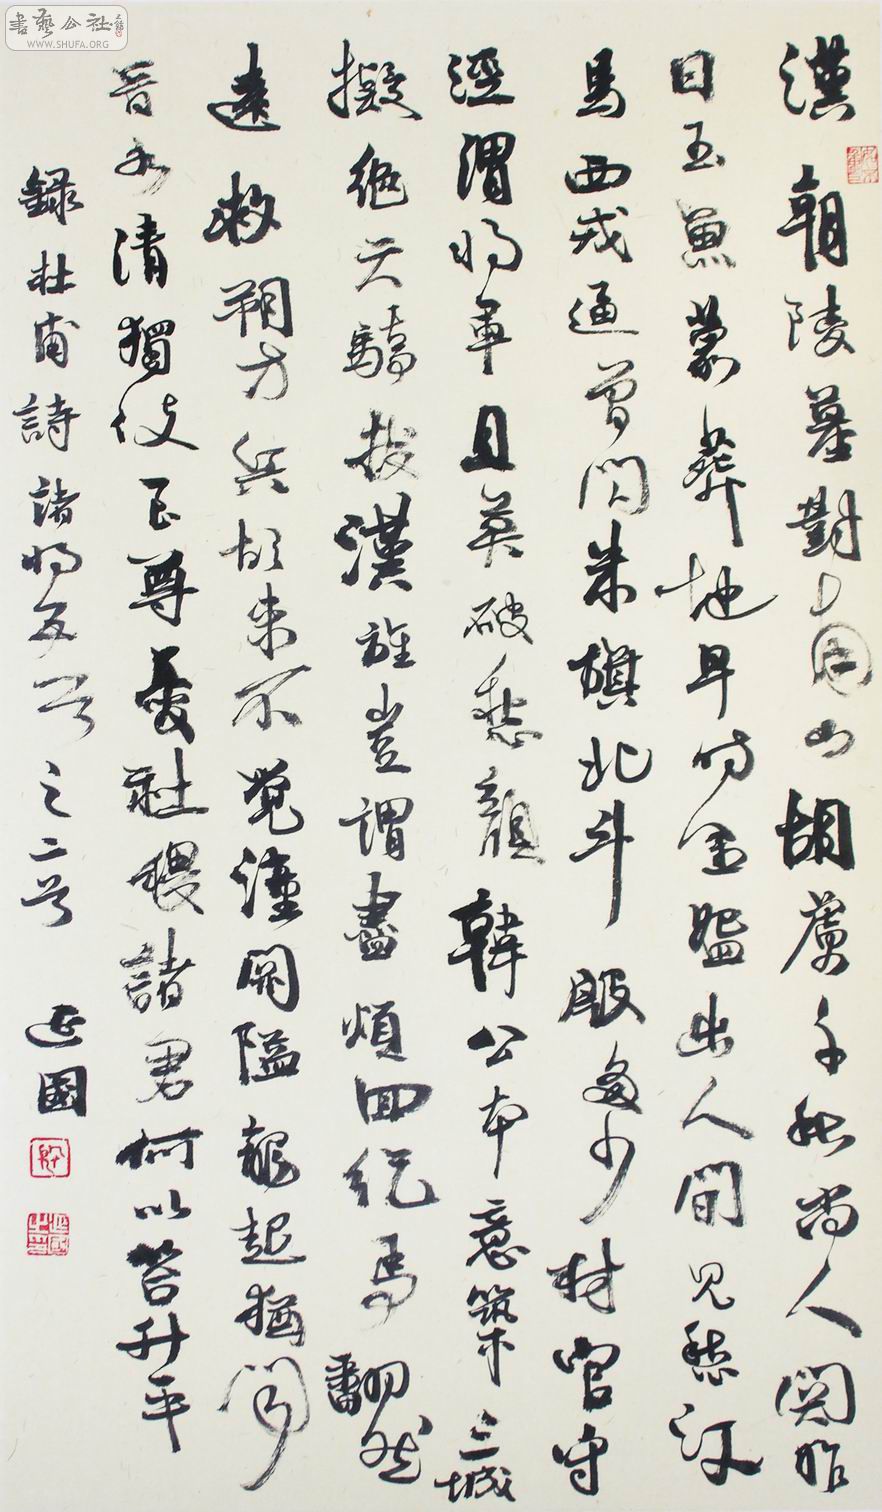 書藝公社
WWW.SHUFA.ORG
漢朝陵墓對南山胡虜千秋尚人関昨
日玉魚蒙葬地早時金盌出人間見愁汗
馬西戎逼曾閃朱旗北斗殷多少材官守
涇渭將軍且莫破愁顏韓公本意築三城
擬絕天驕拔漢旌豈謂盡煩回紇馬翻然
遠救朔方兵胡來不覺潼關隘龍起猶聞
晉水清獨使至尊憂社稷諸君何以答升平
錄杜甫詩諸將五首之二首 延國